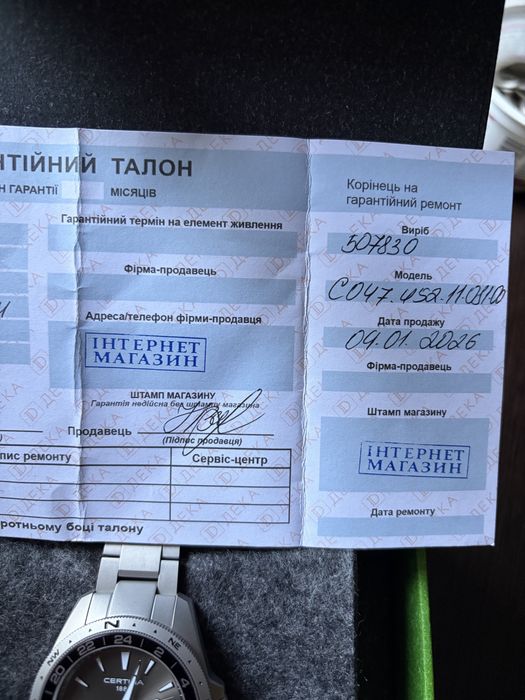 НТІЙНИЙ ТАЛОН
Н ГАРАНТІЇ МІСЯЦІВ
Гарантійний термін на елемент живлення
Фірма-продавець
Адреса/телефон фірми-продавця
ІНТЕРНЕТ
МАГАЗИН
ШТАМП МАГАЗИНУ
Гарантія недійсна без штампу магазина
Продавець
(Підпис продавця)
пис ремонту
Сервіс-центр
воротньому боці талону
Корінець на
гарантійний ремонт
Виріб
507830
Модель
C047.452.11.081.00
Дата продажу
09.01.2026
Фірма-продавець
Штамп магазину
ІНТЕРНЕТ
МАГАЗИН
Дата ремонту
ДЕКА
N
NE
20
22
24
2
4
CERTINA